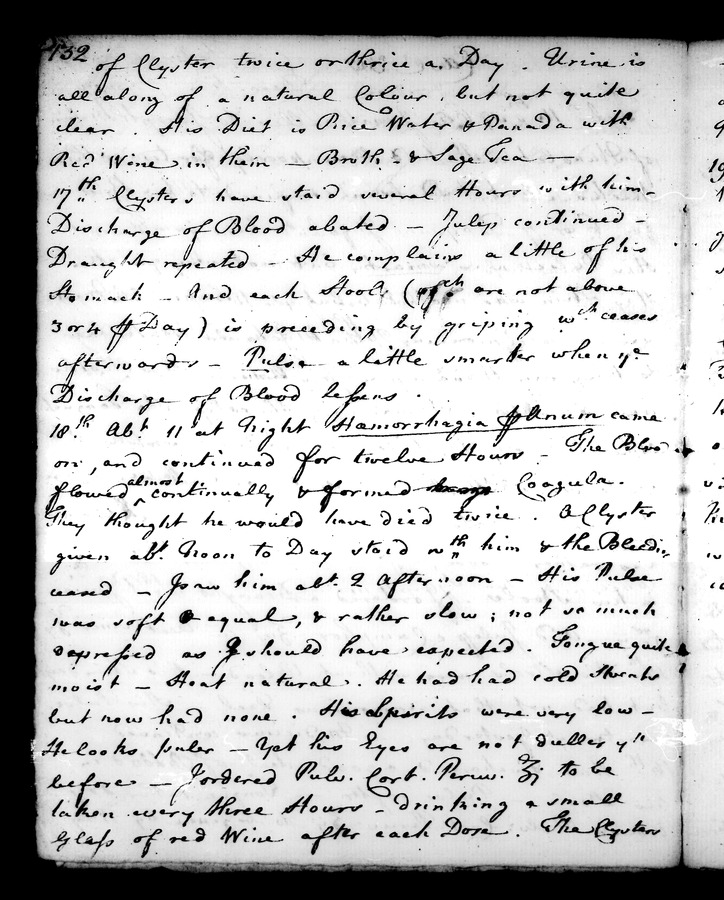 132
of Clyster twice or thrice a Day. Urine is
all along of a natural Colour, but not quite
clear. His Diet is Rice Water & Panada with
Red Wine in them — Broth - & Sage Tea —
17th Clysters have staid several Hours with him -
Discharge of Blood abated — Julep continued -
Draught repeated — He complains a little of his
Stomach - And each Stool (wch are not above
3 or 4 ℔ Day) is preceding by griping wch ceases
afterwards - Pulse a little smarter when ye
Discharge of Blood lessens.
18th Abt 11 at Night Hæmorrhagia ℔ Anum came
on, and continued for twelve Hours - The Blood
flowed almost continually & formed Coagula.
They thought he would have died twice. A Clyster
given abt Noon to Day staid wth him & the Bleeding
ceased - I saw him abt 2 Afternoon — His Pulse
was soft & equal, & rather slow; not so much
depressed as I should have expected. Tongue quite
moist — Heat natural. He had had cold Sweats
but now had none. His Spirits were very low -
He looks paler — Yet his Eyes are not duller yn
before — I ordered Pulv. Cort. Peruv. ʒj to be
taken every three Hours - drinking a small
Glass of red Wine after each Dose. The Clysters